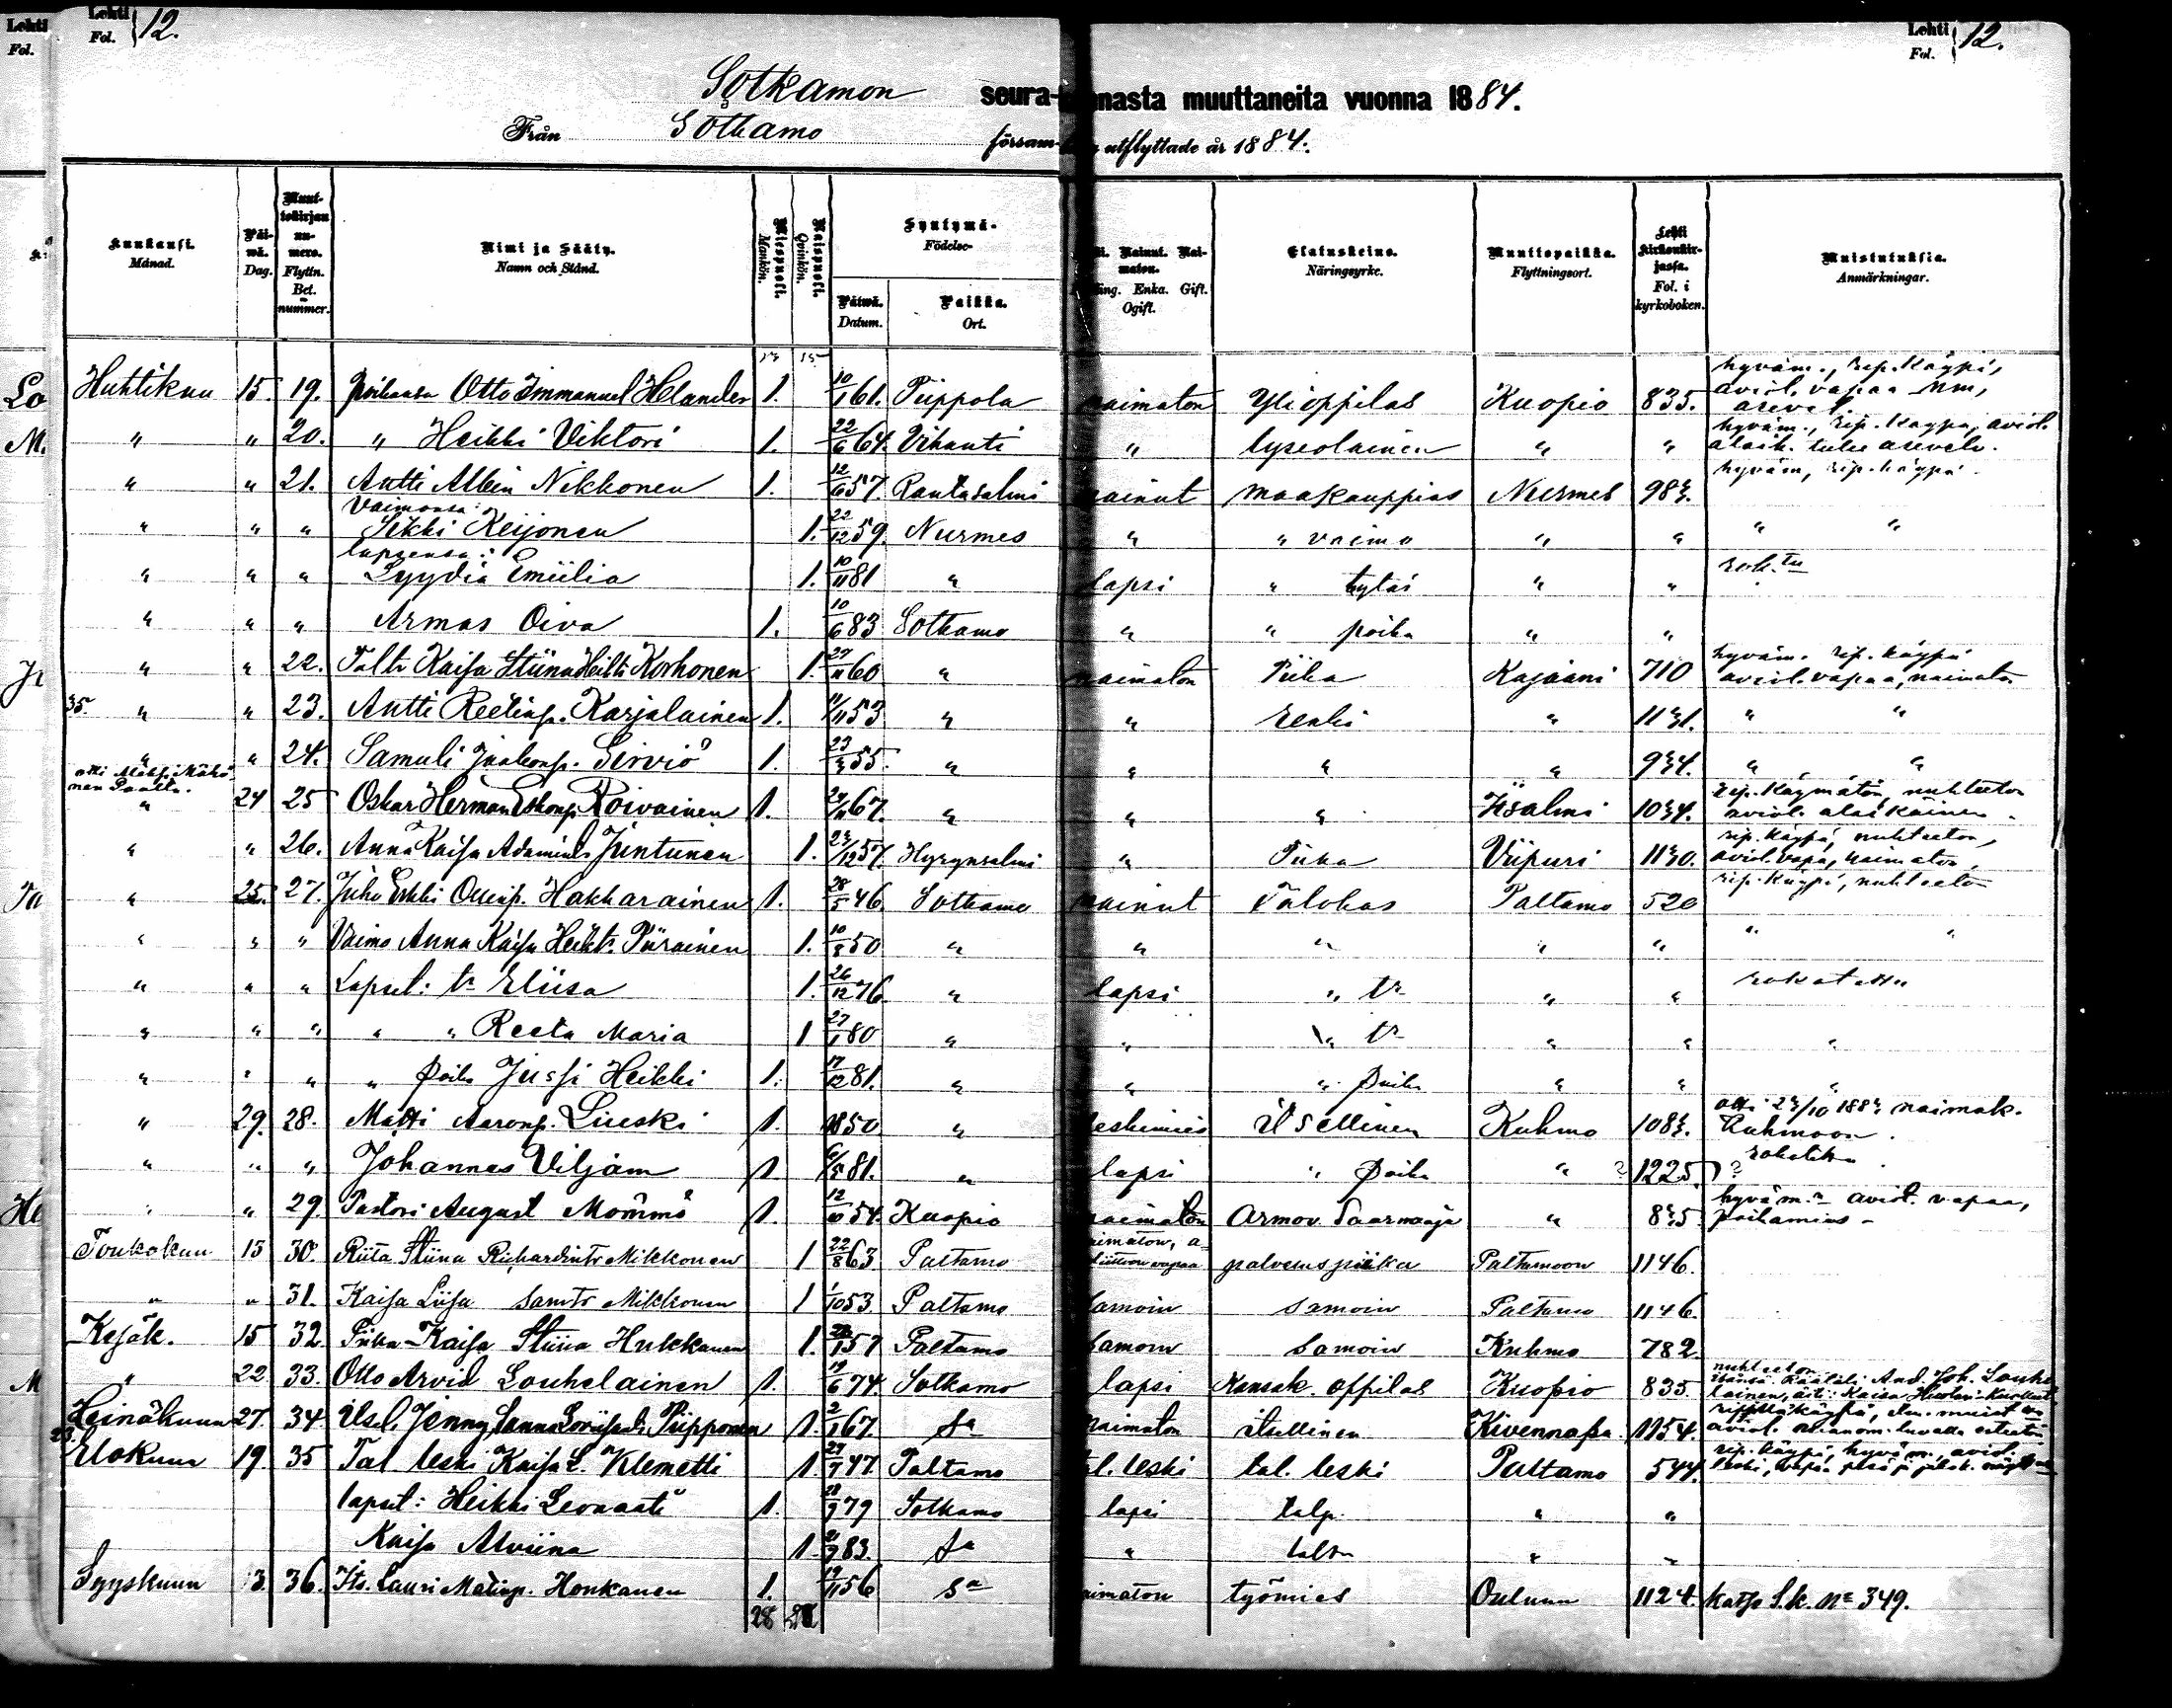 Lehti Fol. 12.
Lehti Fol. 12.
Sotkamon seura- nnasta muuttaneita vuonna 1884.
Från Sotkamo försam- utflyttade år 1884.
Kuukausi. Månad. Päiwä. Dag. Muuttokirjan numero. Flyttn. Bet. nummer. Nimi ja Sääty. Namn och Stånd. Miespuoli. Mankön. Naispuoli. Qvinkön. Syntymä- Födelse- Päiwä. Datum. Paikka. Ort. Nainut. Naimaton. Enka. Gift. Ogift. Elatuskeino. Näringsyrke. Muuttopaikka. Flyttningsort. Lehti kirkonkirjassa. Fol. i kyrkoboken. Muistutuksia. Anmärkningar.
Huhtikuu 15. 19. poikansa Otto Immanuel Helander 1. 10/1 61. Piippola naimaton Ylioppilas Kuopio 835. hyväm., rip. käypi, aviol. vapaa
" " 20. " Heikki Viktori 1. 22/6 64. Vihanti " lyseolainen " " hyväm., rip. käypä, aviol. alaik. tulee asevelv.
" " 21. Antti Albin Nikkonen 1. 12/6 57 Rantasalmi nainut maakauppias Nurmes 983. hyväm, rip. käypä
" " " Vaimonsa: Sikki Keijonen 1. 22/12 59. Nurmes " " vaimo " " " "
" " " lapsensa: Lyydia Emiilia 1. 10/11 81 " lapsi " tytär " " rok.tu
" " " Armas Oiva 1. 10/6 83 Sotkamo " " poika " "
" " 22. Taltr Kaisa Stiina Heiktr Korhonen 1. 27/11 60 " naimaton Piika Kajaani 710 hyväm. rip. käypä aviol. vapaa, naimaton
35. " " 23. Antti Reetinp. Karjalainen 1. 11/11 53 " " renki " 1131. " "
" " 24. Samuli Jaakonp. Sirviö 1. 55. " " " " 934. " "
" 24 25 Oskar Herman Eskonp. Roivainen 1. 67. " " " Iisalmi 1034. rip. käymätön, nuhteeton aviol. alaikäinen.
" " 26. Anna Kaisa Adamintr Juntunen 1. 57. Hyrynsalmi " Piika Viipuri 1130. rip. käypä, nuhteeton, aviol. vapa, naimaton,
" 25. 27. Juho Erkki Ollinp. Hakkarainen 1. 28/5 46 Sotkamo nainut Talokas Paltamo 520 rip. käypä, nuhteeton
" " " Vaimo Anna Kaisa Heikt. Piirainen 1. 10/8 50 " " " " " " "
" " " Lapset: tr Eliisa 1. 26/12 76 " lapsi " tr " " rokotettu
" " " " " Reeta Maria 1 27/1 80 " " " tr " " "
" " " " poika Jussi Heikki 1. 17/12 81. " " " poika " " "
" 29. 28. Matti Aaronp. Lieski 1. 50 " leskimies Itsellinen Kuhmo 1083. otti naimak. Kuhmoon.
" " " Johannes Viljam 1. 81. " lapsi " poika " ? 1225 ? rokotettu
" " 29. Pastori August Mömmö 1. 12/10 54. Kuopio naimaton Armov. Saarnaaja " 835 hyväm. aviol. vapaa, poikamies -
Toukokuu 15 30. Riita Stiina Richardintr Mikkonen 1 22/8 63 Paltamo naimaton, a- liittoon vapaa palveluspiika Paltamoon 1146.
" " 31. Kaisa Liisa Samtr Mikkonen 1 1/10 53 Paltamo samoin samoin Paltamo 1146.
Kesäk. 15 32. Piika Kaisa Stiina Hukkanen 1. 57 Paltamo samoin samoin Kuhmo 782.
" 22. 33. Otto Arvid Louhelainen 1. 19/6 74 Sotkamo lapsi Kansak. oppilas Kuopio 835 nuhteeton isänsä: Räätäli And. Joh. Louhelainen, äiti: Kaisa
Heinäkuun 27. 34. Itsel. Jenny Sanna Loviisatr Piipponen 1. 2/1 67. Sa naimaton itsellinen Kivennapa 1154.
23. Elokuun 19. 35 Tal. leski Kaisa L. Klemetti 1. 47 Paltamo tal. leski tal. leski Paltamo 544. rip. käypä, hyväm. aviol. leski, vapaa
lapset: Heikki Levaarti 1. 28/9 79 Sotkamo lapsi talp. " "
Kaisa Alviina 1. 21/9 83. Sa " taltr " "
Syyskuun 3. 36. Its. Lauri Matinp. Honkanen 1. 19/11 56 Sa naimaton työmies Ouluun 1124. Katso S.k. No 349.
28